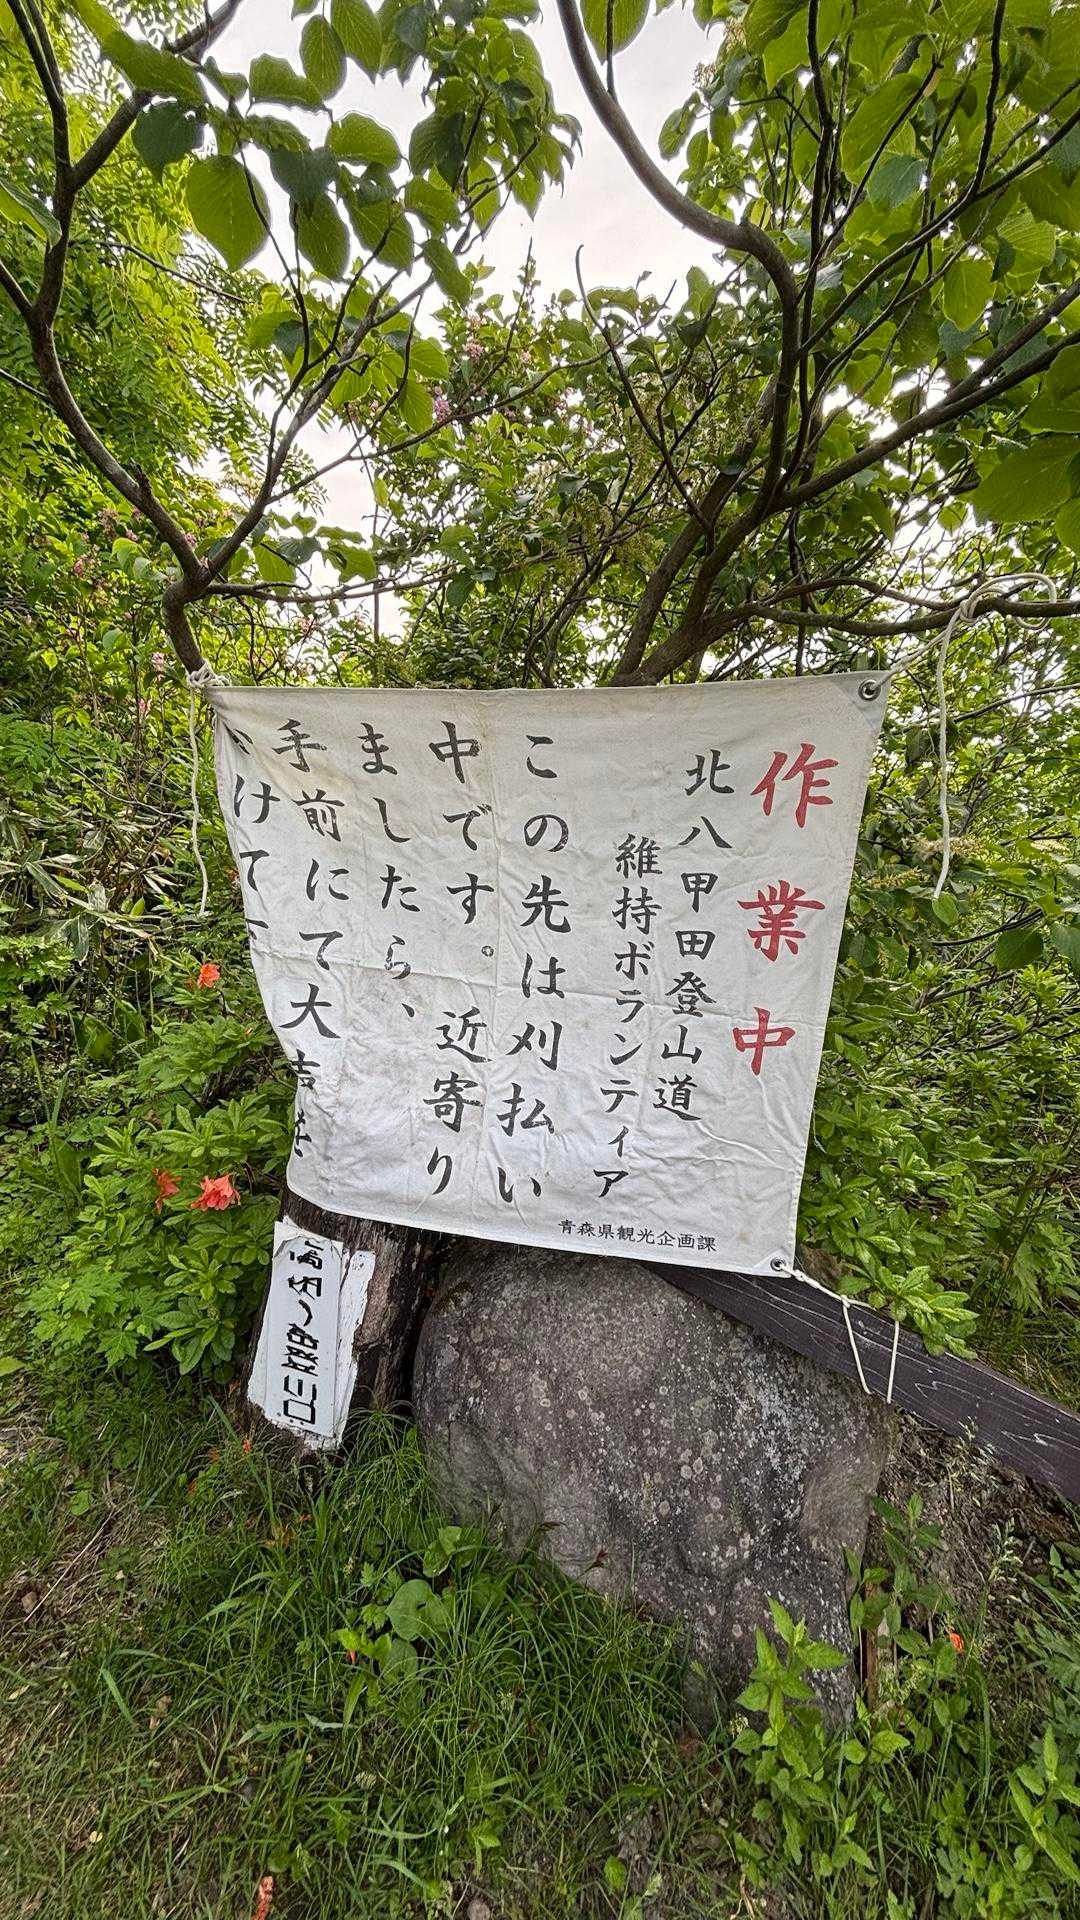 作業中
北八甲田登山道
維持ボランティア
この先は刈払い
中です。近寄り
ましたら、
手前にて大声を
かけて
青森県観光企画課
登山口